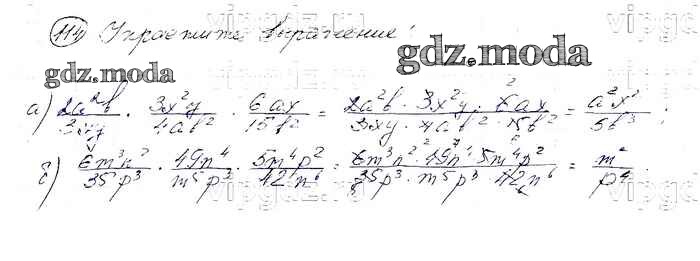 114 Упростите выражение:
gdz.moda
gdz.moda
а) 2a²b/3xy · 3x²y/4ab² · 6ax/15b² = 2a²b · 3x²y · 6ax / 3xy · 4ab² · 15b² = a²x²/5b³ ;
б) 6m³n²/35p³ · 49n⁴/m⁵p³ · 5m⁴p²/42n⁶ = 6m³n² · 49n⁴ · 5m⁴p² / 35p³ · m⁵p³ · 42n⁶ = m²/p⁴ .